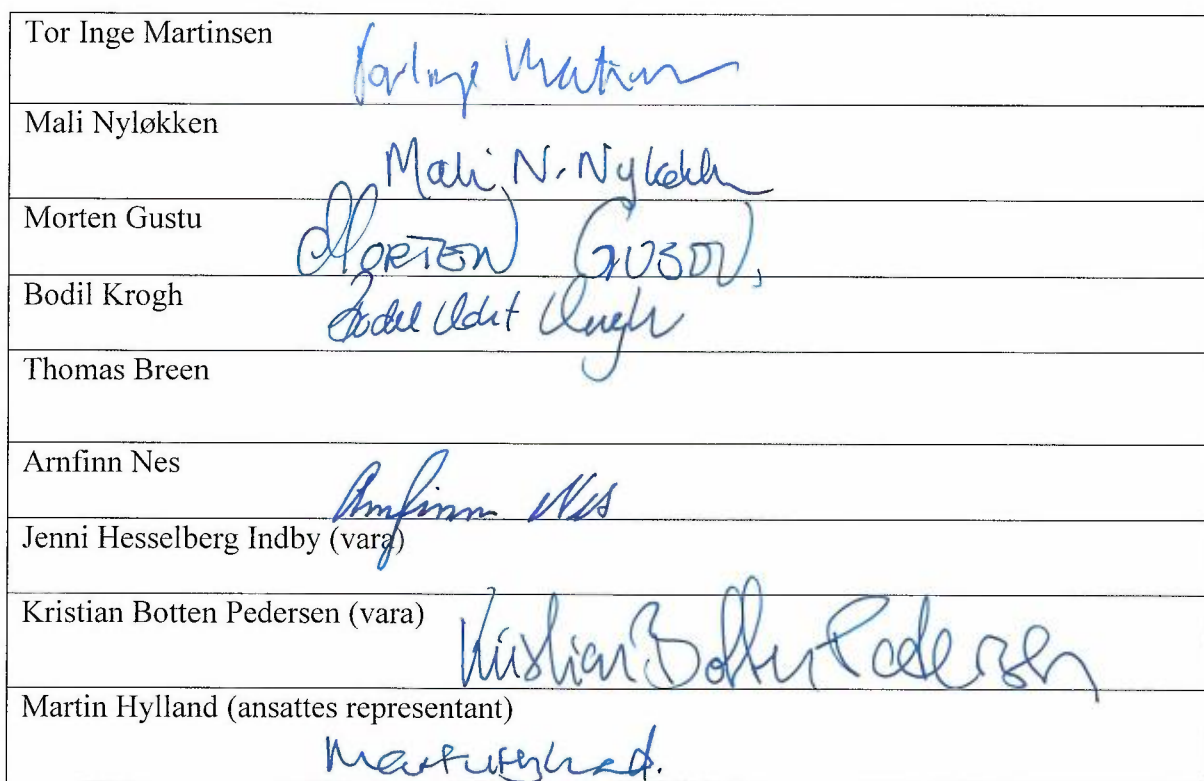 Tor Inge Martinsen
Tor Inge Martinsen
Mali Nyløkken
Mali N. Nyløkken
Morten Gustu
MORTEN
Bodil Krogh
Bodil Krogh
Thomas Breen
Arnfinn Nes
Arnfinn Nes
Jenni Hesselberg Indby (vara)
Kristian Botten Pedersen (vara)
Kristian Botten Pedersen
Martin Hylland (ansattes representant)
Martin Hylland